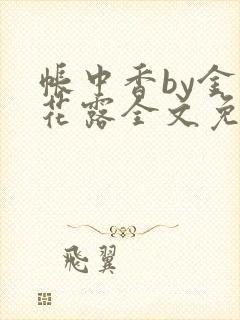 帳中香by金
花露全文免
飛翼